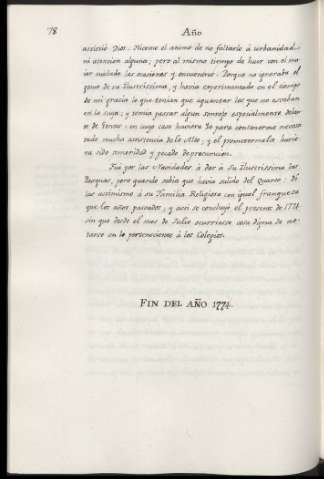 78 Año
assistió Dios. Hicime el animo de no faltarle à urbanidad,
ni atencion alguna; pero al mismo tiempo de huir con el ma-
ior cuidado las ocasiones, y encuentros. Porque no ignoraba el
genio de su Ilustrissima, y havia experimentado en el tiempo
de mi gracia lo que tenian que aguantar los que no estaban
en la suya; y temia passar algun sonrojo especialmente delan-
te de Señor: en cuyo caso huviera Yo para contenerme necessi-
tado mucha assistencia de lo Alto; y el prometermela huvie-
ra sido temeridad y pecado de presuncion.
Fui por las Navidades à dar à Su Ilustrissima las
Pasquas, pero quando sabia que havia salido del Quarto: di-
las assimismo à su Familia Religiosa con igual franqueza
que los años passados; y assi se concluyó el presente de 1774.
sin que desde el mes de Julio ocurriesse cosa digna de no-
tarse en lo perteneciente à los Colegios.
FIN DEL AÑO 1774.